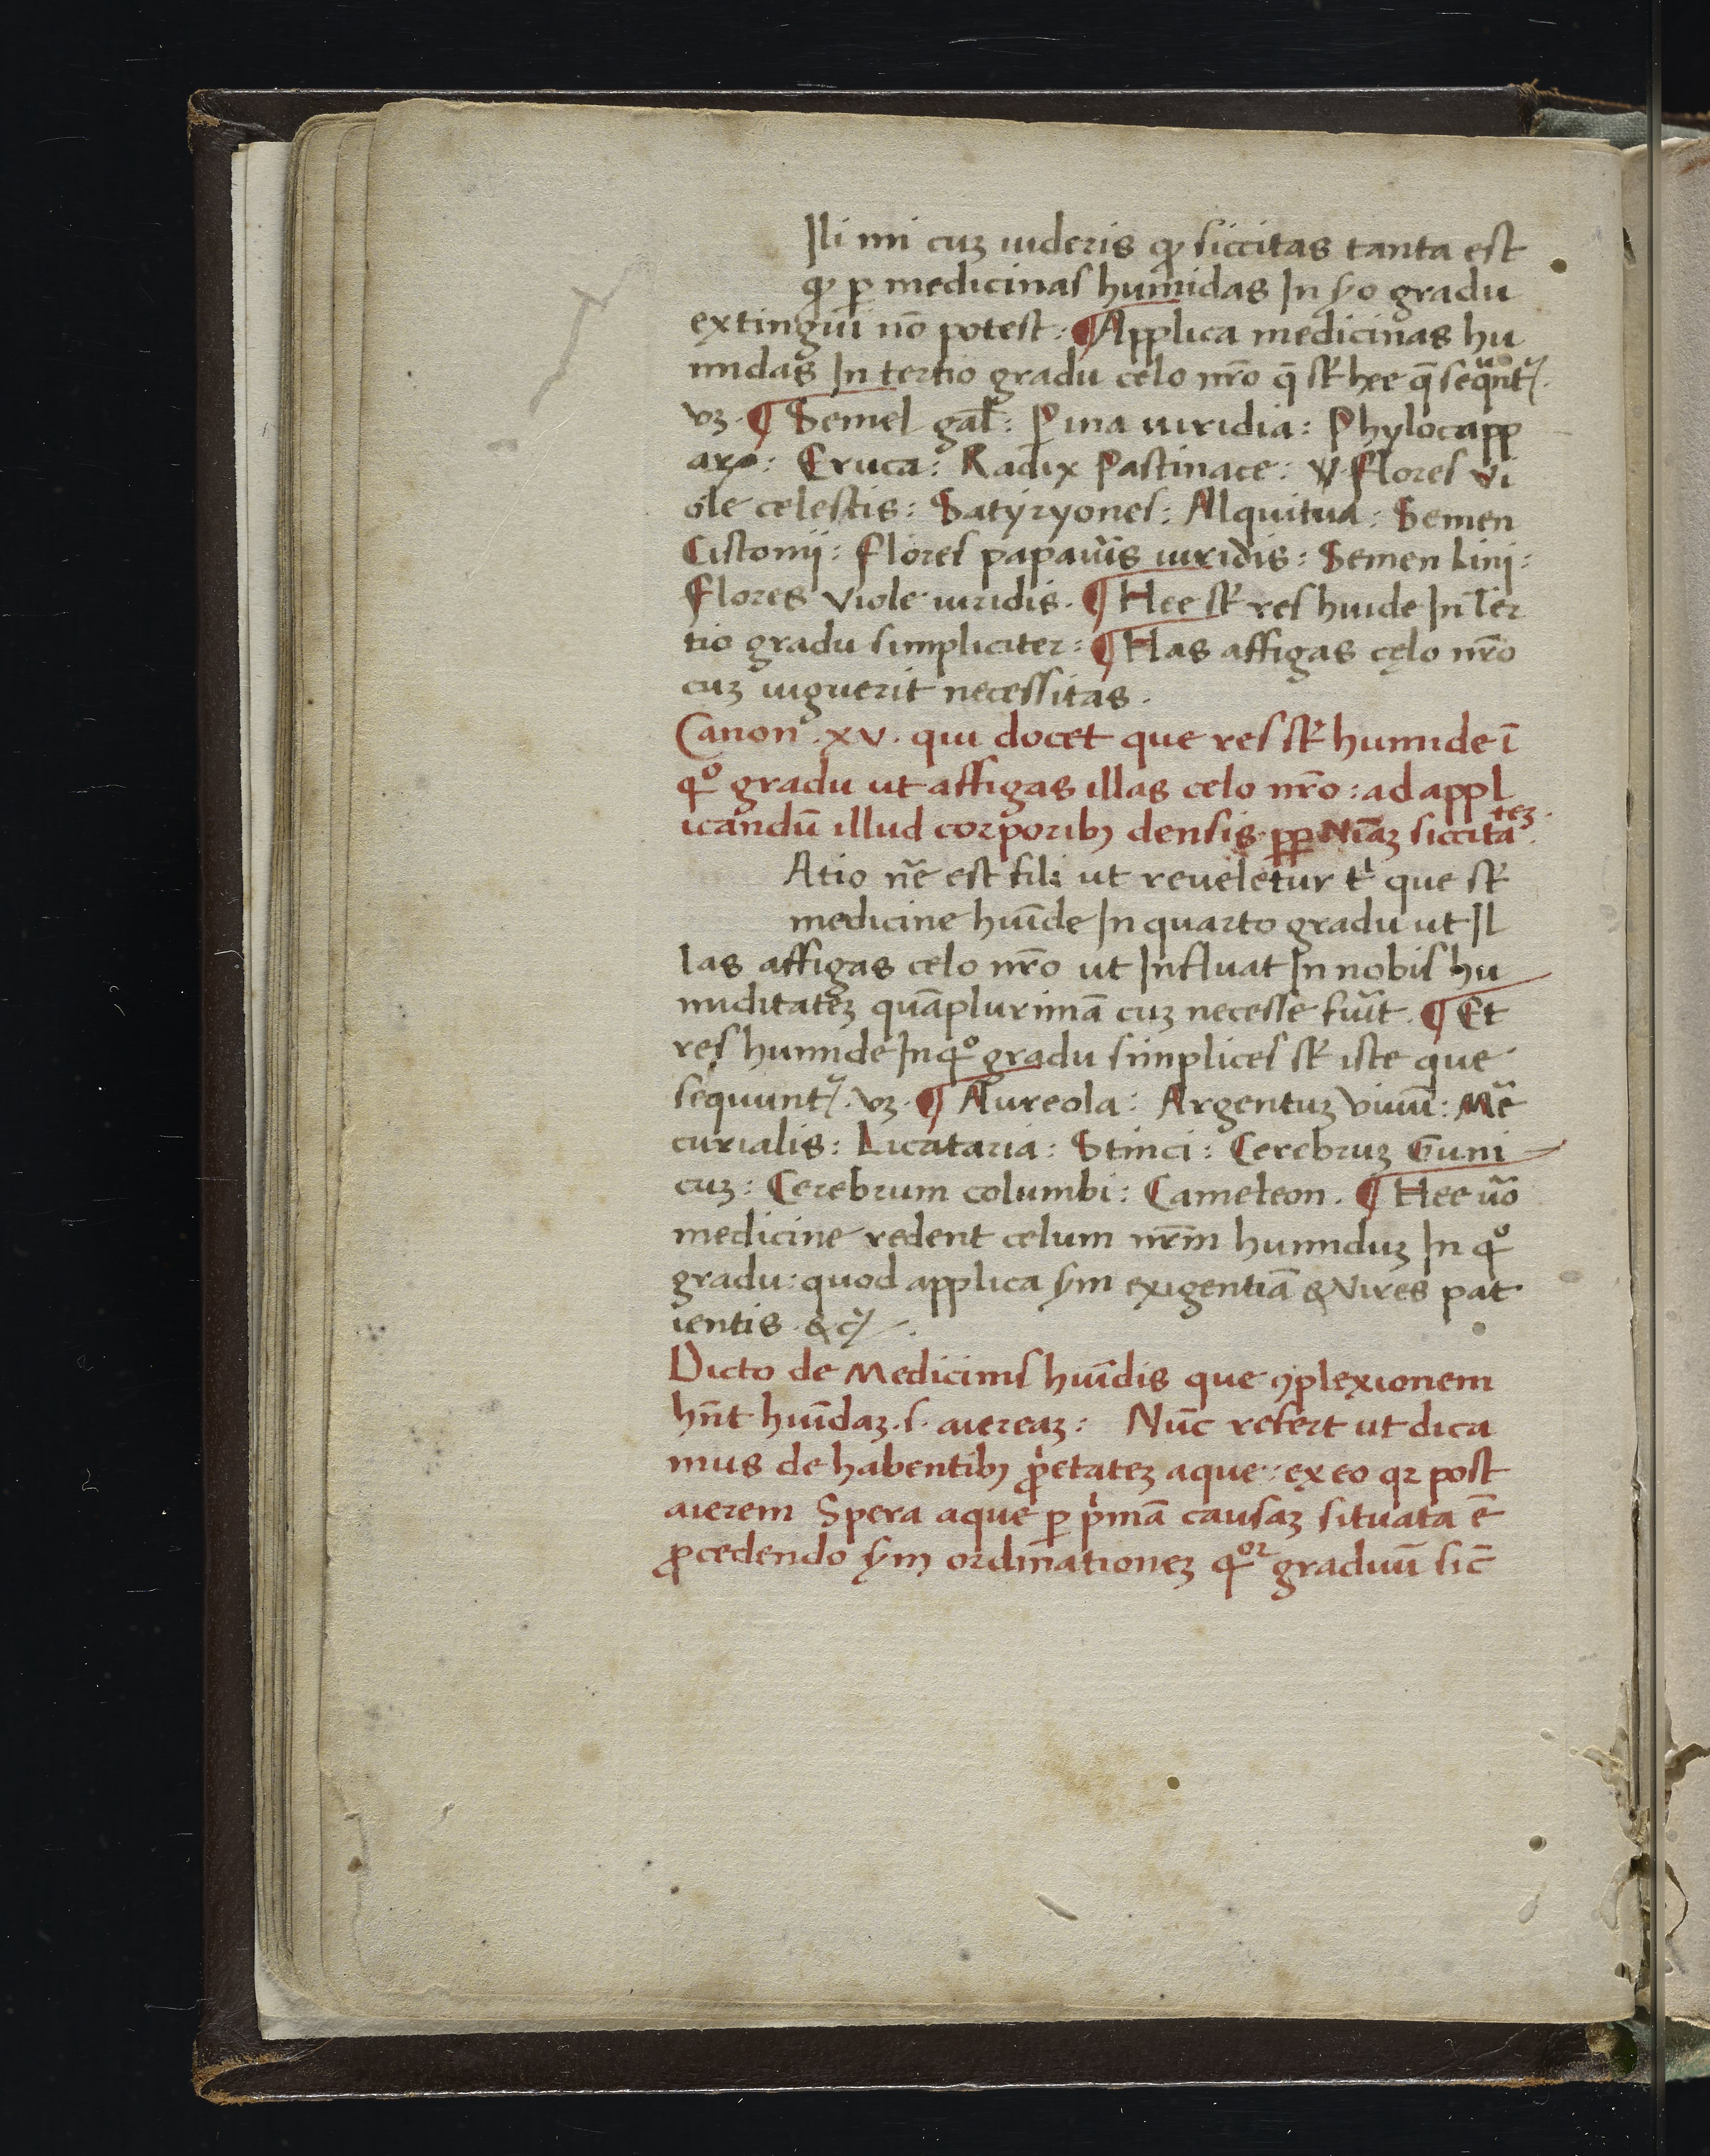 Ili mi cuꝫ uideris ꝙ siccitas tanta est
ꝙ ꝑ medicinas humidas In s̸o gradu
extingui nō potest: ¶ Applica medicinas hu
midas In tertio gradu celo nr̄o q̄ st̄ hee q̄ sequntr̄.
vꝫ. ¶ Semel gal̄: Pina uiridia: Phylocapp
aro: Eruca: Radix Pastinace: V. Flores Vi
ole celestis: Satyryones: Alquitua: Semen
Cistomij: Flores papaūis uiridis: Semen Linij:
Flores Viole uiridis. ¶ Hee st̄ res huīde In Ter
tio gradu simpliciter: ¶ Has affigas cęlo nr̄o
cuꝫ uiguerit necessitas.
Canon. xv. qui docet que res st̄ humide ī
qͦ gradu ut affigas illas celo nr̄o: ad appl
icandū illud corporibꝫ densis ꝑꝑ Nīaꝫ siccitateꝫ.
Atio nē est fili ut reueletur tͥ que st̄
medicine huīde In quarto gradu ut Il
las affigas celo nr̄o ut Influat In nobis hu
miditateꝫ quāplurimā cuꝫ necesse fūit. ¶ Et
res humide In qͦ gradu simplices st̄ iste que
sequuntr̄. vꝫ. ¶ Aureola: Argentuꝫ viuū: Mē
curialis: Licataria: Stinci: Cerebruꝫ Guni
cuꝫ: Cerebrum columbi: Cameleon. ¶ Hee ūo
medicine redent celum nr̄m humiduꝫ In qͦ
gradu: quod applica s̸m exigentiā & Vires pat
ientis. &c̄.
Dicto de Medicinis huīdis que ꝯplexionem
hn̄t huīdaꝫ. s. aiereaꝫ: Nūc refert ut dica
mus de habentibꝫ ꝓͥetateꝫ aque: ex eo qꝛ post
aierem Spera aque ꝑ pͥmā causaꝫ situata ē
ꝓcedendo s̸m ordinationeꝫ qͦꝛ graduū sic̄